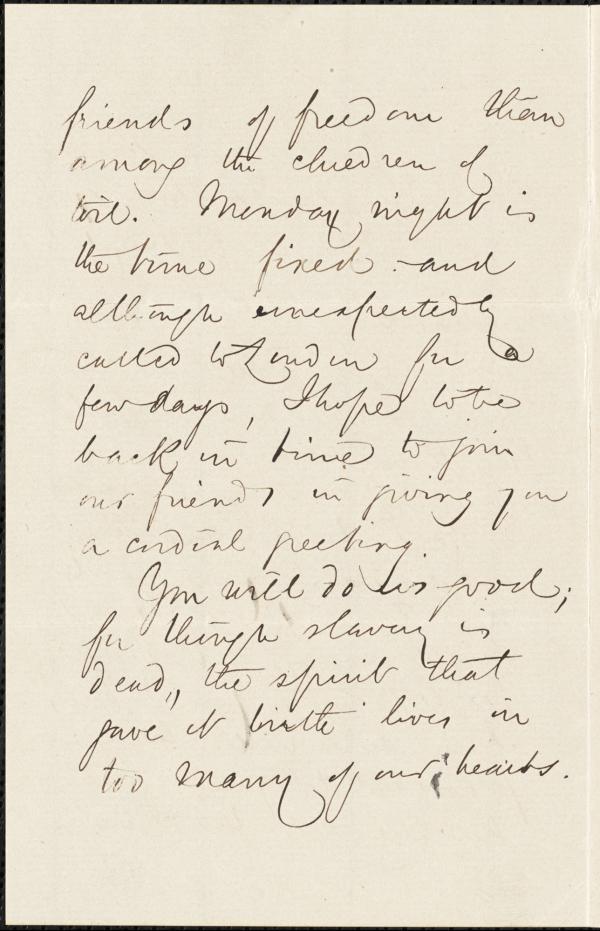 friends of freedom than
among the children of
toil. Monday night is
the time fixed - and
although unexpectedly
called to London for a
few days, I hope to be
back in time to join
our friends in giving you
a cordial greeting.
You will do us good;
for though slavery is
dead, the spirit that
gave it birth lives in
too many of our hearts.